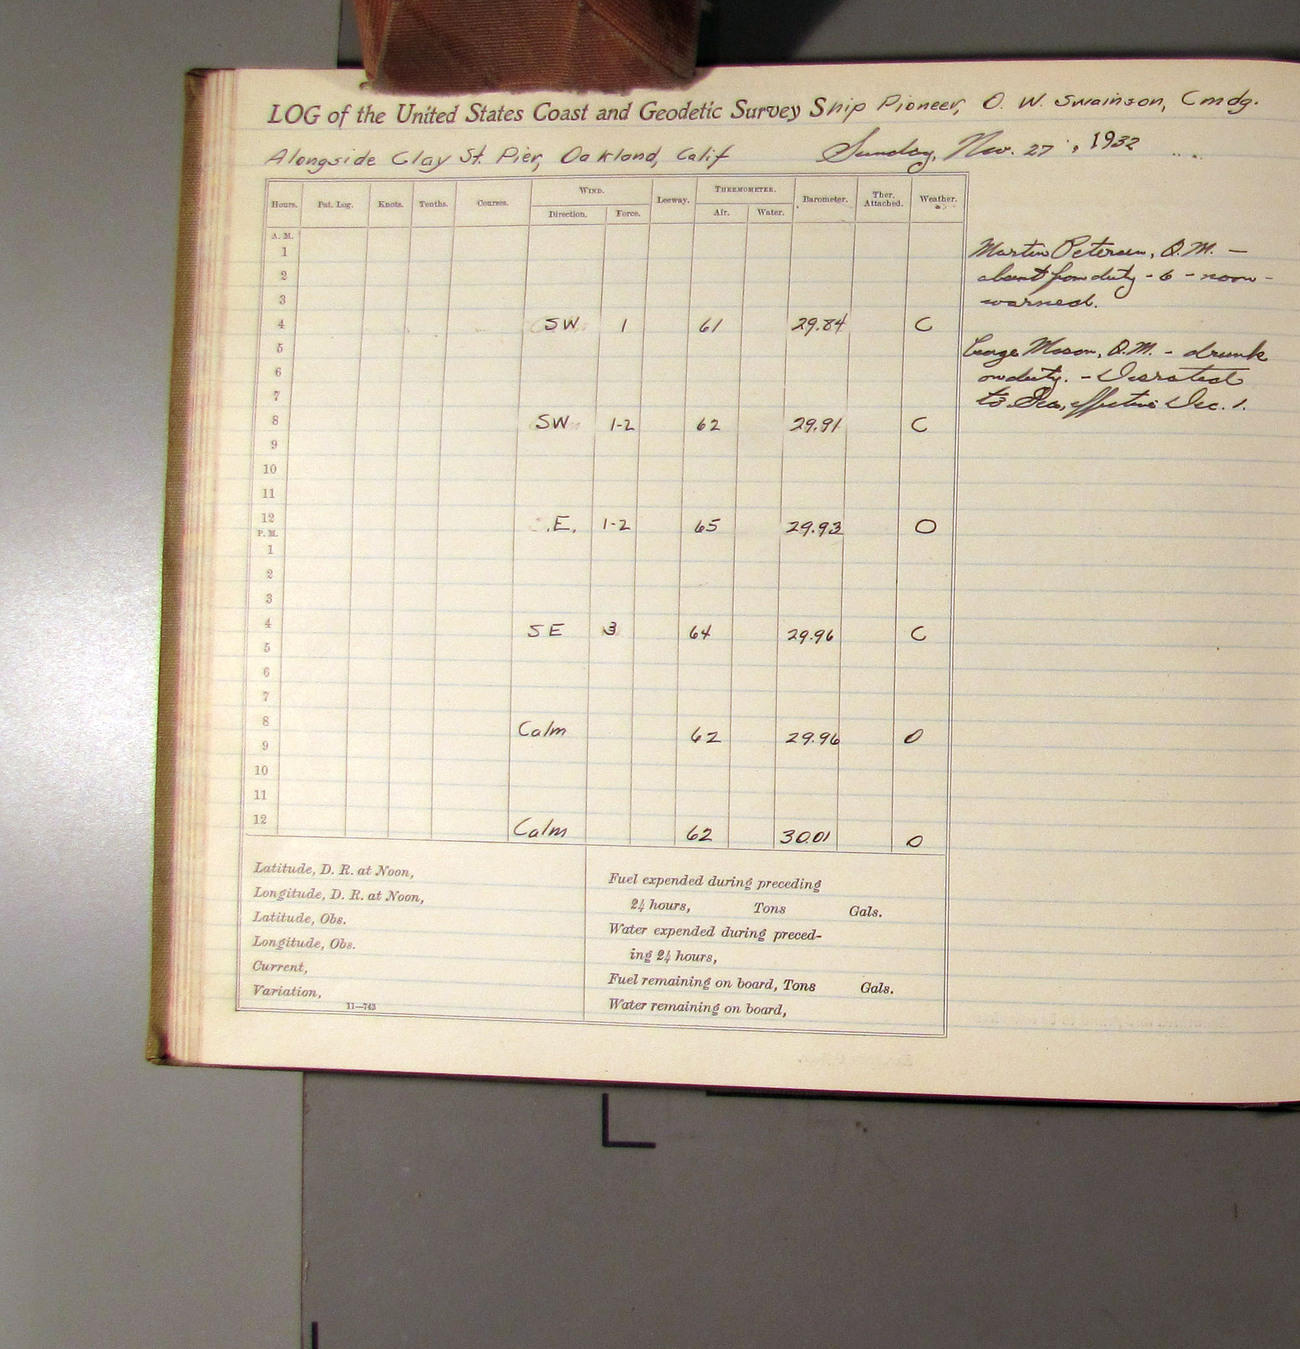 LOG of the United States Coast and Geodetic Survey Ship Pioneer, O. W. Swainson, Cmdg.
Alongside Clay St. Pier, Oakland, Calif Sunday, Nov. 27, 1932
Hours. Pat. Log. Knots. Tenths. Courses. WIND. Direction. Force. Leeway. THERMOMETER. Air. Water. Barometer. Ther. Attached. Weather.
A. M.
1
2
3
4 SW 1 61 29.84 C
5
6
7
8 SW 1-2 62 29.91 C
9
10
11
12 .E. 1-2 65 29.93 O
P. M.
1
2
3
4 SE 3 64 29.96 C
5
6
7
8 Calm 62 29.96 O
9
10
11
12 Calm 62 30.01 O
Martin Petersen, Q.M. —
absent from duty - 6 - noon -
warned.
George Mason, Q.M. - drunk
on duty. - Disrated
to Sea, effective Dec. 1.
Latitude, D. R. at Noon,
Longitude, D. R. at Noon,
Latitude, Obs.
Longitude, Obs.
Current,
Variation,
11—743
Fuel expended during preceding
24 hours, Tons Gals.
Water expended during preced-
ing 24 hours,
Fuel remaining on board, Tons Gals.
Water remaining on board,